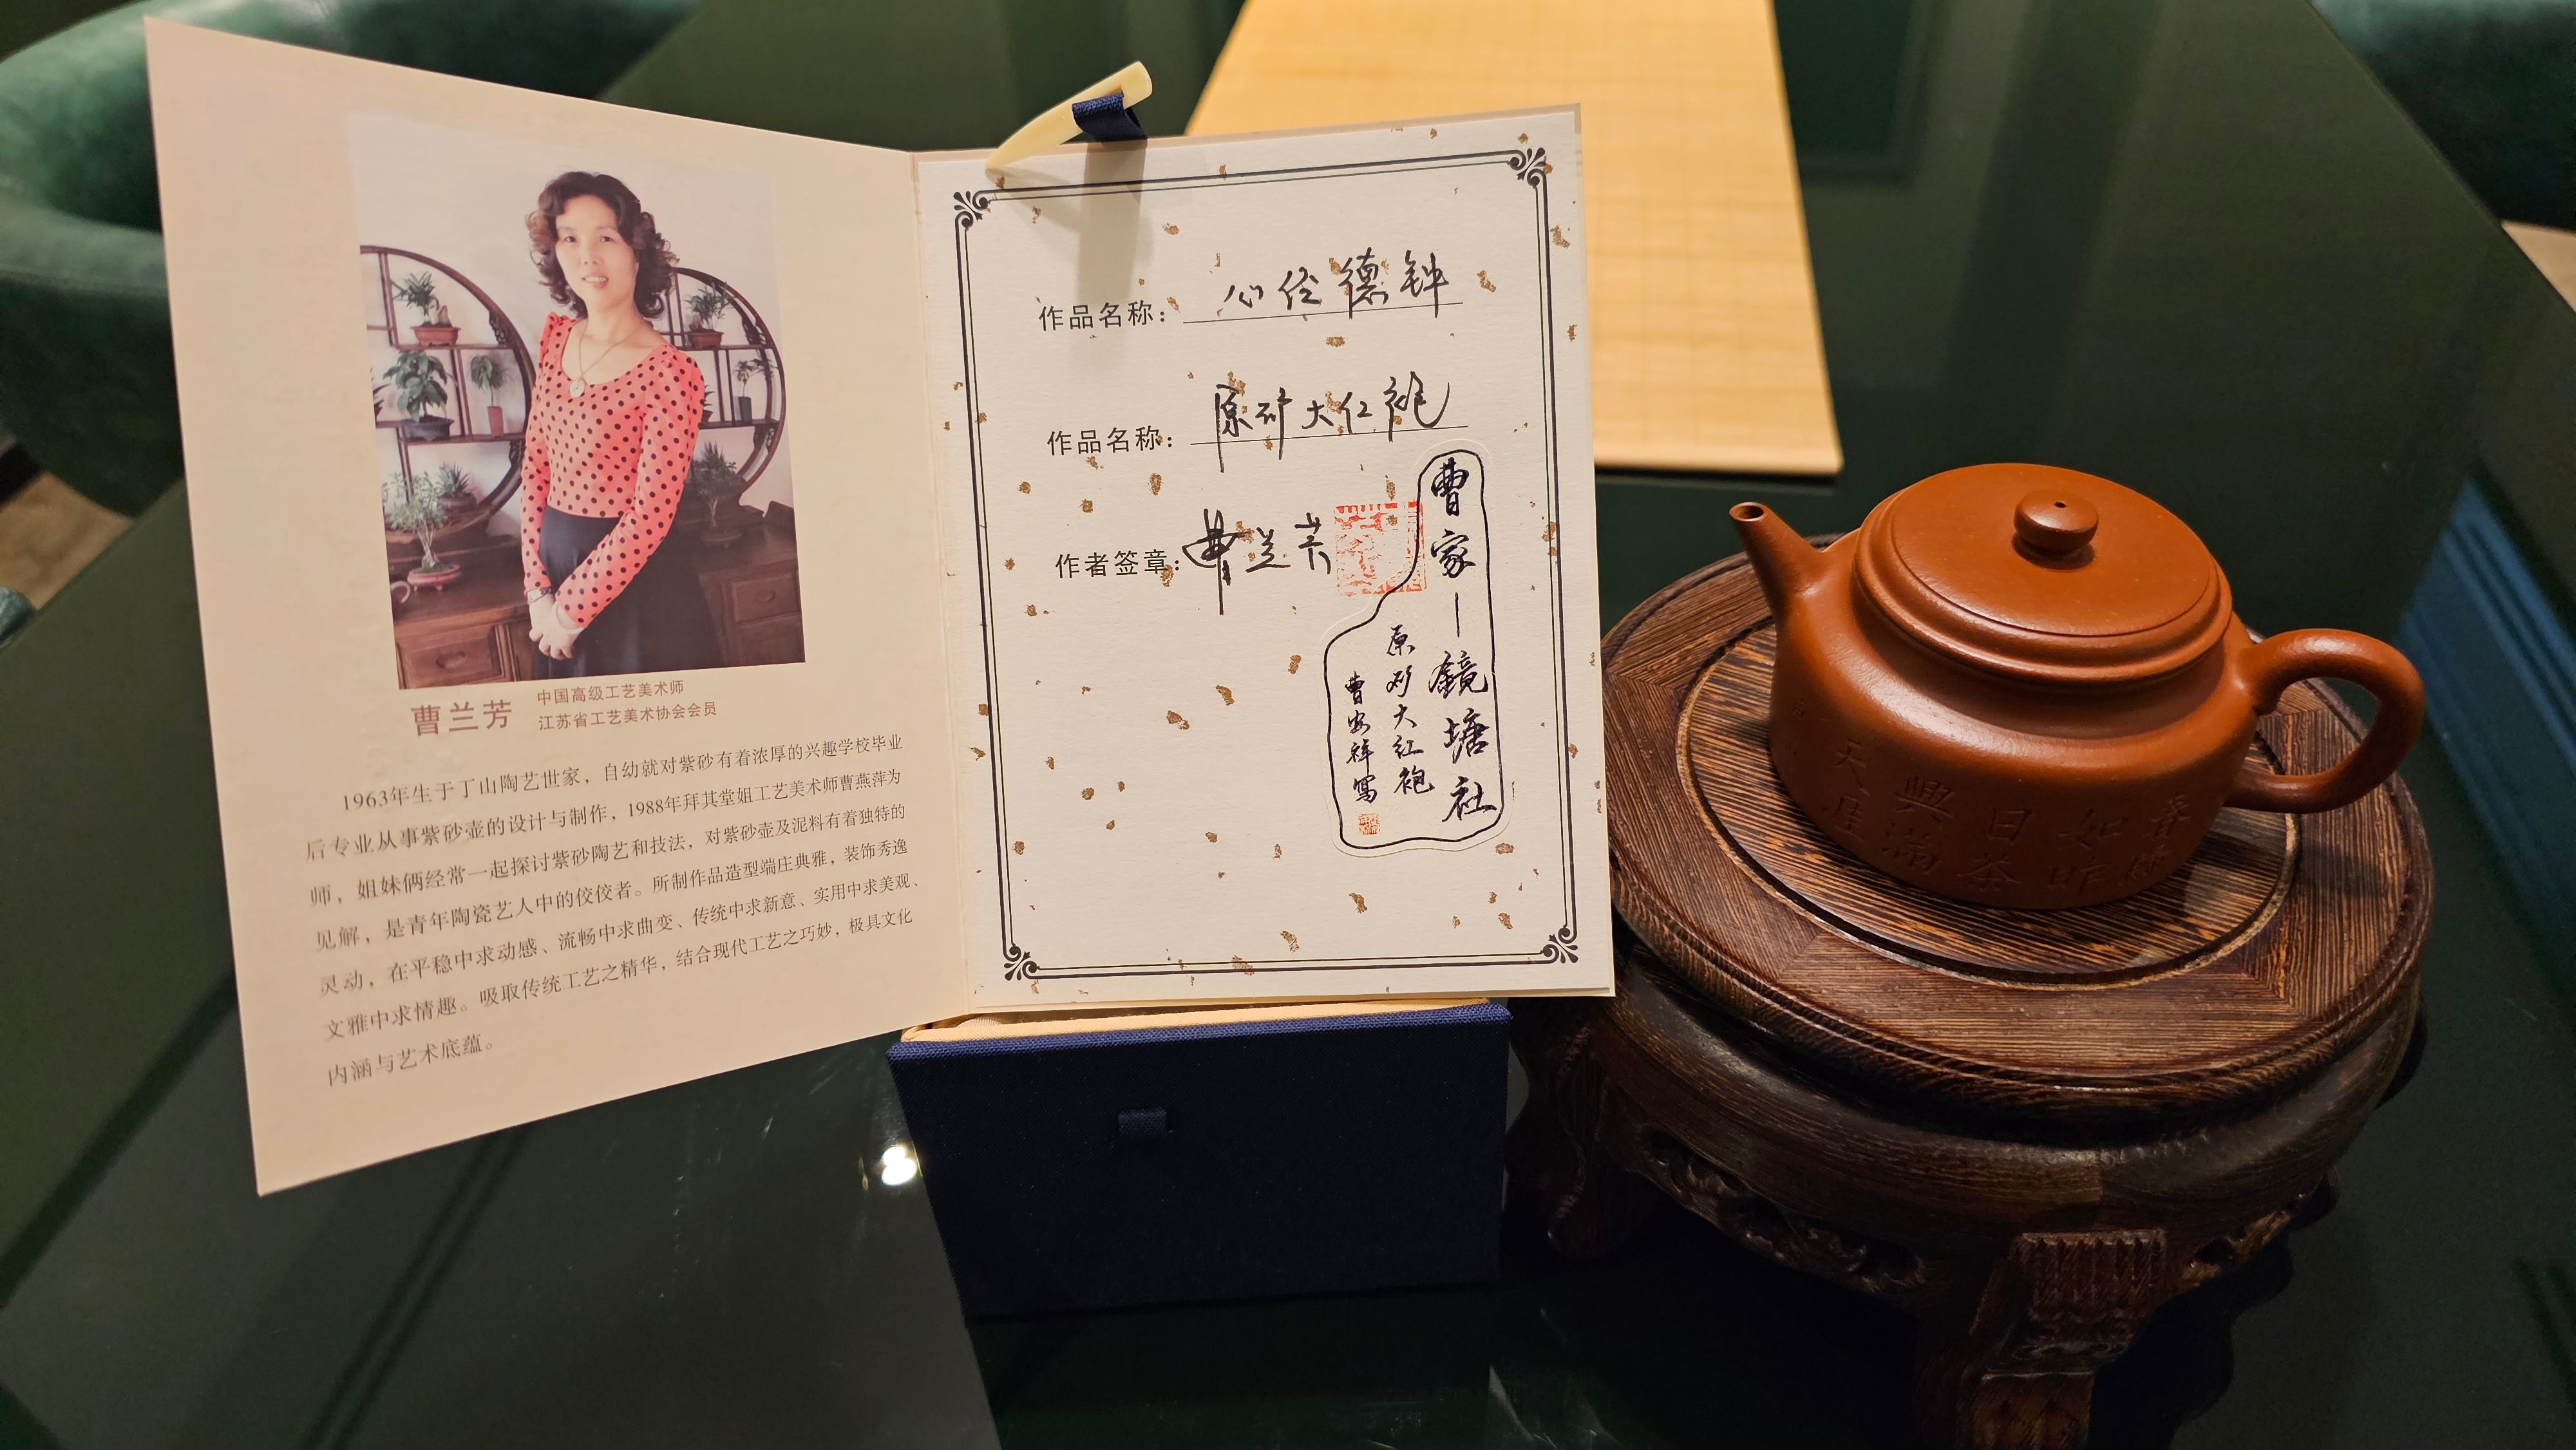 曹兰芳
中国高级工艺美术师
江苏省工艺美术协会会员
1963年生于丁山陶艺世家，自幼就对紫砂有着浓厚的兴趣学校毕业
后专业从事紫砂壶的设计与制作，1988年拜其堂姐工艺美术师曹燕萍为
师，姐妹俩经常一起探讨紫砂陶艺和技法，对紫砂壶及泥料有着独特的
见解，是青年陶瓷艺人中的佼佼者。所制作品造型端庄典雅，装饰秀逸
灵动，在平稳中求动感、流畅中求曲变、传统中求新意、实用中求美观、
文雅中求情趣。吸取传统工艺之精华，结合现代工艺之巧妙，极具文化
内涵与艺术底蕴。
作品名称：心经德钟
作品名称：原矿大红袍
作者签章：曹兰芳
曹家—鏡塘社
原矿大红袍
曹安祥寫
天
涯
興
滿
日
茶
如
昨